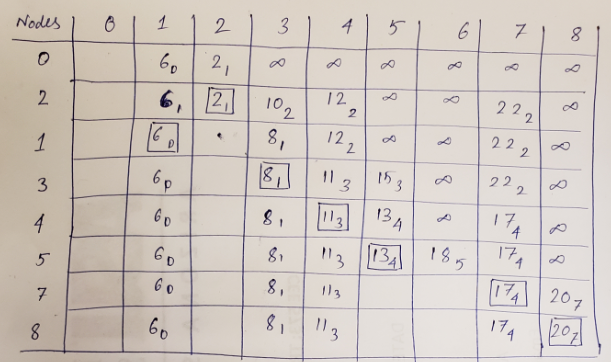 Nodes 0 1 2 3 4 5 6 7 8
0 6₀ 2₁ ∞ ∞ ∞ ∞ ∞ ∞
2 6₁ 2₁ 10₂ 12₂ ∞ ∞ 22₂ ∞
1 6₀ 8₁ 12₂ ∞ ∞ 22₂ ∞
3 6₀ 8₁ 11₃ 15₃ ∞ 22₂ ∞
4 6₀ 8₁ 11₃ 13₄ ∞ 17₄ ∞
5 6₀ 8₁ 11₃ 13₄ 18₅ 17₄ ∞
7 6₀ 8₁ 11₃ 17₄ 20₇
8 6₀ 8₁ 11₃ 17₄ 20₇